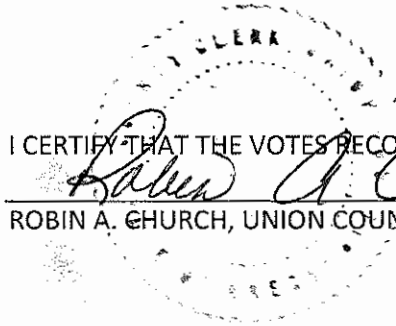 CLERK
I CERTIFY THAT THE VOTES RECO
Robin A. C
ROBIN A. CHURCH, UNION COUN